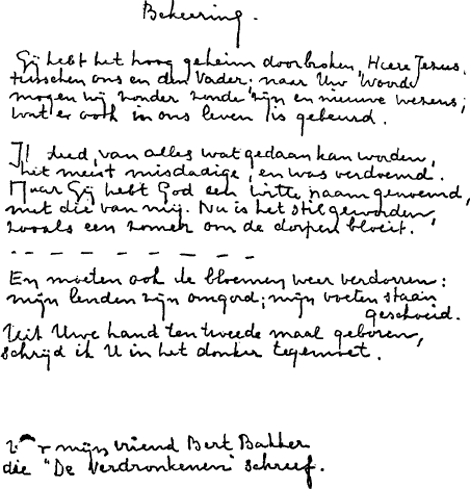 Bekeering.
Gij hebt het hoog geheim doorbroken, Heere Jezus.
tusschen ons en den Vader; naar Uw Woord
mogen wij zonder zonde zijn en nieuwe wezens;
wat er ook in ons leven is gebeurd.
Ik deed, van alles wat gedaan kan worden,
het meest misdadige, en was verdoemd.
Maar Gij hebt God een witte naam genoemd,
met die van mij. Nu is het stil geworden,
zooals een zomer om de dorpen bloeit.
— — — — — — — —
En moeten ook de bloemen weer verdorren:
mijn lenden zijn omgord; mijn voeten staan
geschoeid.
Uit Uwe hand ten tweede maal geboren,
schrijd ik U in het donker tegemoet.
mijn vriend Bert Bakker
die "De Verdronkenen" schreef.